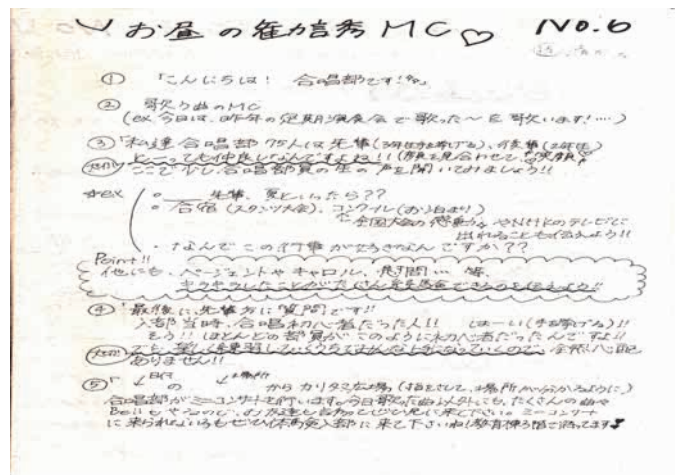 お昼の 信秀MC♡ No.6
① 「こんにちは! 合唱部です!」
② 歌うめのMC
(ex 今日は、昨年の定期演奏会で歌った〜を歌います!…)
③ 「私達合唱部75人は先輩(3年生手を挙げる)、後輩(2年生)
とーっても仲良しなんですよね!!(顔を見合わせて、笑顔)
ここで少し合唱部員の生の声を聞いてみましょう!!
ex 。 先輩、夏といったら??
。合宿(スタンツ大会)、コンクール(お泊まり)
全国大会の感動 やNHKのテレビに
出れることも伝えよう!!
・なんでこの行事が好きなんですか??
Point!!
他にも、ページェントやキャロル、慰問… 等、
キラキラしたことがたくさん
④ 「最後に先輩方に質問です!!
入部当時、合唱初心者だった人!! はーい(手を挙げる)!!
そう!! ほとんどの部員がこのように初心者だったんですよ!!
でも、楽しく練習していくうちに なっていくので、全然心配
ありません!!
⑤ 「 ↓日付 の ↓場所 からカリタス広場(指をさして、場所が分かるように)
合唱部がミニコンサートを行います。今日歌った曲以外にも、たくさんの曲や
Bellもやるので、お友達も誘ってぜひ見に来て下さい。ミニコンサート
に来られない人もぜひ 入部に来て下さいね!教育棟3階で待ってます